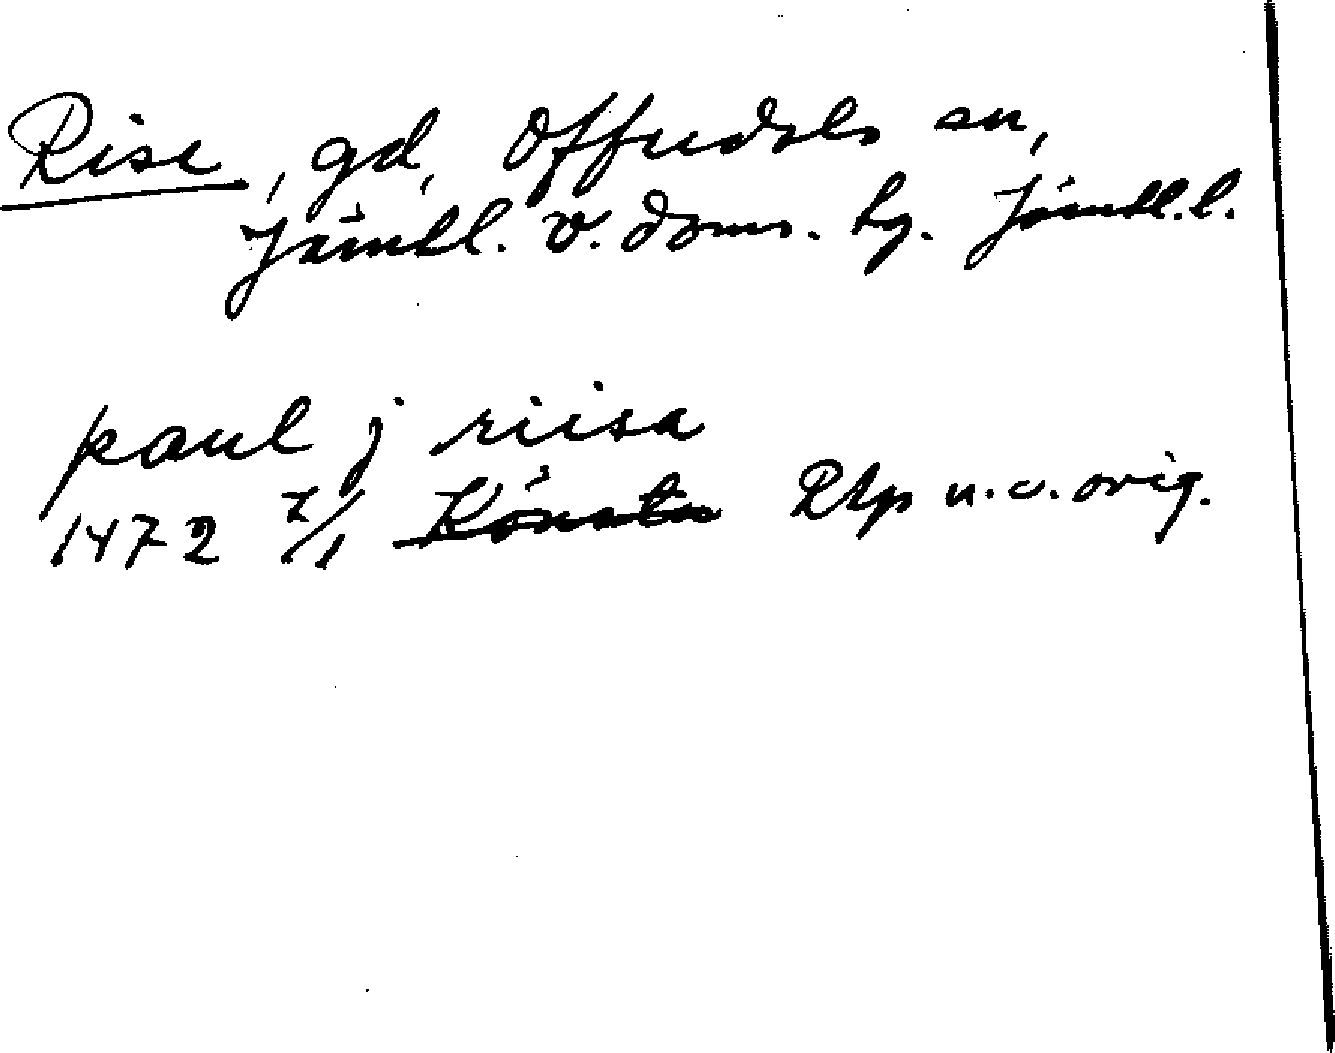 Rise, gd, Offerdals sn,
Jämtl. v. doms. hg. Jämtl. l.
paul j riisa
1472 7/1 Rhp u. v. orig.